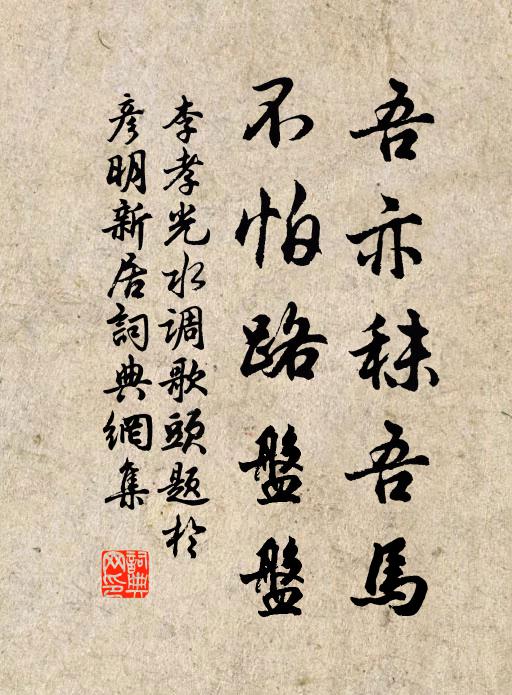 吾亦秣吾馬
不怕路盤盤
李孝光水調歌頭題於
彥明新居詞典網集
詞典
网印